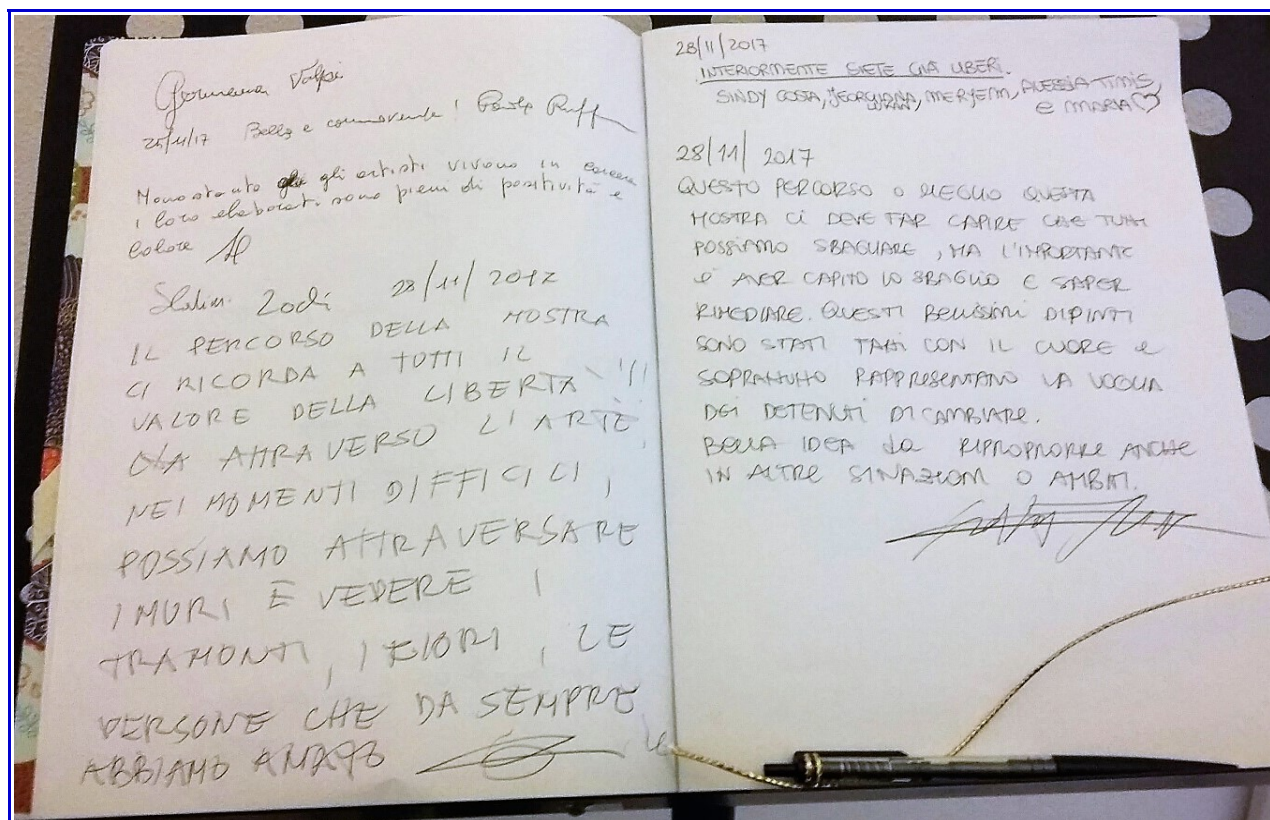 Germana Volpi
25/11/17 Bello e commovente! Paola Ruff
Nonostante gli artisti vivono in carcere
i loro elaborati sono pieni di positività e
colore
Zodi 28/11/2017
IL PERCORSO DELLA MOSTRA
CI RICORDA A TUTTI IL
VALORE DELLA LIBERTÀ !!!
MA ATTRAVERSO L'ARTE,
NEI MOMENTI DIFFICILI,
POSSIAMO ATTRAVERSARE
I MURI E VEDERE I
TRAMONTI, I FIORI, LE
PERSONE CHE DA SEMPRE
ABBIAMO AMATO
28/11/2017
INTERIORMENTE SIETE GIÀ LIBERI.
SINDY COSTA, JEORGIANA, MERYEM, ALESSIA TIMIS,
e MARIA ♡
28/11/2017
QUESTO PERCORSO O MEGLIO QUESTA
MOSTRA CI DEVE FAR CAPIRE CHE TUTTI
POSSIAMO SBAGLIARE, MA L'IMPORTANTE
è AVER CAPITO LO SBAGLIO E SAPER
RIMEDIARE. QUESTI BELLISSIMI DIPINTI
SONO STATI FATTI CON IL CUORE e
SOPRATTUTTO RAPPRESENTANO LA VOGLIA
DEI DETENUTI DI CAMBIARE.
BELLA IDEA da RIPROPRORRE ANCHE
IN ALTRE SITUAZIONI O AMBITI.